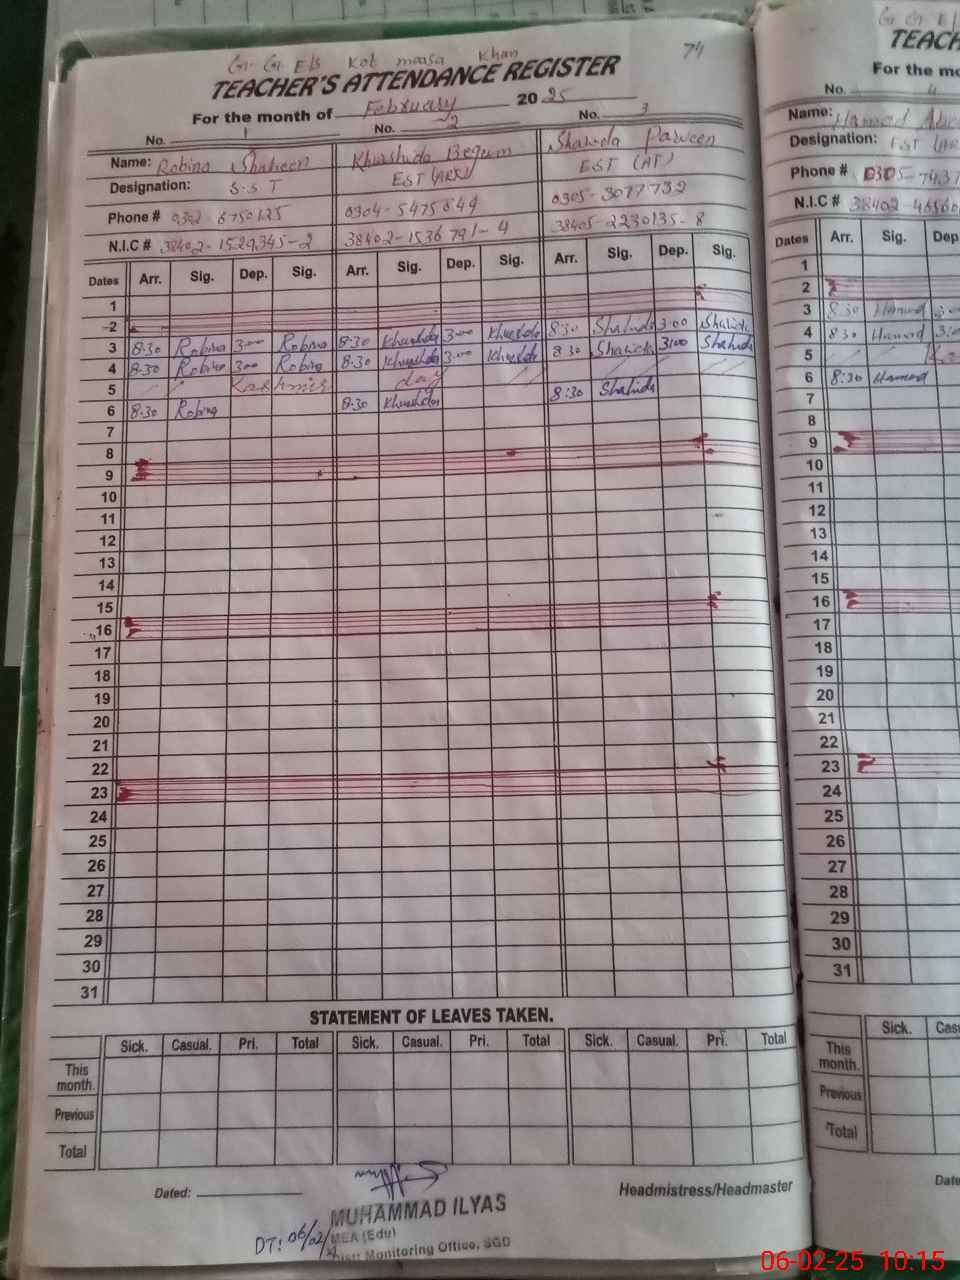 G. G. E/S Kot moosa Khan
74
TEACHER'S ATTENDANCE REGISTER
For the month of February 2025
No. 1 No. 2 No. 3
Name: Robina Shaheen Khurshida Begum Shahida Parveen
Designation: S.S T EST (ARB) EST (AT)
Phone # 0304-5475849 0305-3077739
N.I.C # 38402-1529345-2 38402-1536791-4 38405-2230135-8
Dates Arr. Sig. Dep. Sig. Arr. Sig. Dep. Sig. Arr. Sig. Dep. Sig.
1
2
3 8-30 Robina 3:00 Robina 8-30 Khurshida 3:00 Khurshida 8:30 Shahida 3:00 Shahida
4 8-30 Robina 3:00 Robina 8-30 Khurshida 3:00 Khurshida 8:30 Shahida 3:00 Shahida
5 Kashmir day
6 8-30 Robina 8-30 Khurshida 8:30 Shahida
7
8
9
10
11
12
13
14
15
16
17
18
19
20
21
22
23
24
25
26
27
28
29
30
31
STATEMENT OF LEAVES TAKEN.
Sick. Casual. Pri. Total Sick. Casual. Pri. Total Sick. Casual. Pri. Total
This month.
Previous
Total
Dated:
Headmistress/Headmaster
MUHAMMAD ILYAS
MEA (Edu)
Monitoring Office, SGD
DT: 06/02/
G. G. E/S
TEACH
For the mo
No. 4
Name: Hamood
Designation: EST
Phone # 0305-7437
N.I.C # 38402-46560
Dates Arr. Sig. Dep
1
2
3 8:30 Hamood
4 8:30 Hamood
5
6 8:30 Hamood
7
8
9
10
11
12
13
14
15
16
17
18
19
20
21
22
23
24
25
26
27
28
29
30
31
Sick. Cas
This month.
Previous
Total
Date
06-02-25 10:15